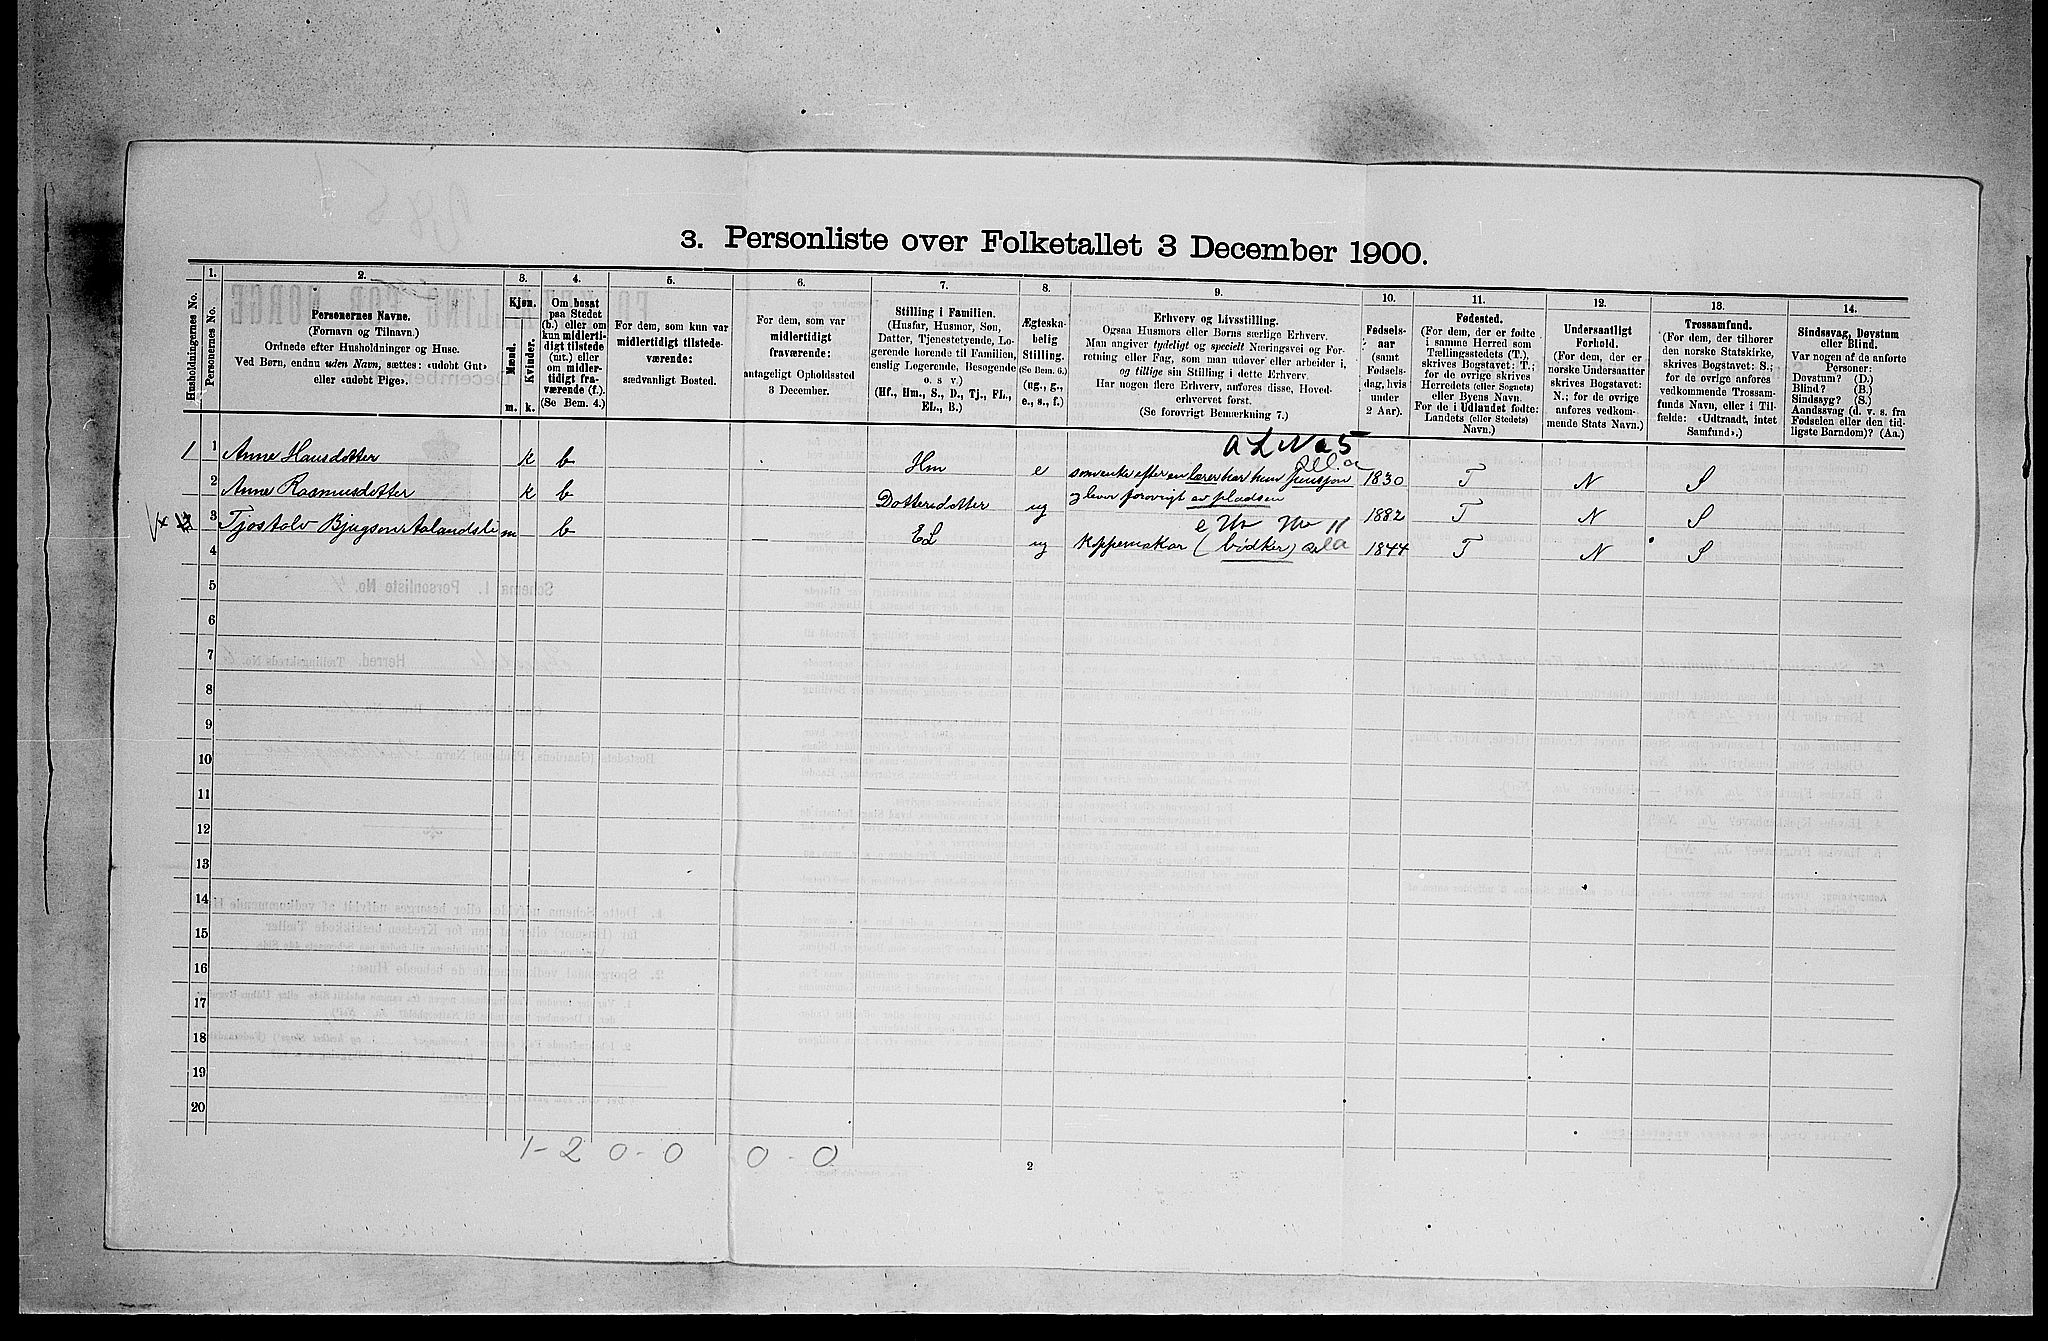 3. Personliste over Folketallet 3 December 1900.
Husholdningernes No.
1.
Personernes No.
2.
Personernes Navne.
(Fornavn og Tilnavn.)
Ordnede efter Husholdninger og Huse.
Ved Børn, endnu uden Navn, sættes: «udøbt Gut»
eller «udøbt Pige».
3.
Kjøn.
Mænd.
Kvinder.
m. k.
4.
Om bosat
paa Stedet
(b.) eller om
kun midlerti-
digt tilstede
(mt.) eller
om midler-
tidigt fra-
værende (f.).
(Se Bem. 4.)
5.
For dem, som kun var
midlertidigt tilstede-
værende:
sædvanligt Bosted.
6.
For dem, som var
midlertidigt
fraværende:
antageligt Opholdssted
3 December.
7.
Stilling i Familien.
(Husfar, Husmor, Søn,
Datter, Tjenestetyende, Lo-
gerende hørende til Familien,
enslig Logerende, Besøgende
o. s. v.)
(Hf., Hm., S., D., Tj., FL.,
EL., B.)
8.
Ægteska-
belig
Stilling.
(Se Bem. 6.)
(ug., g.,
e., s., f.)
9.
Erhverv og Livsstilling.
Ogsaa Husmors eller Børns særlige Erhverv.
Man angiver tydeligt og specielt Næringsvei og For-
retning eller Fag, som man udøver eller arbeider i,
og tillige sin Stilling i dette Erhverv.
Har nogen flere Erhverv, anføres disse, Hoved-
erhvervet først.
(Se forøvrigt Bemærkning 7.)
10.
Fødsels-
aar
(samt
Fødsels-
dag, hvis
under
2 Aar).
11.
Fødested.
(For dem, der er fødte
i samme Herred som
Tællingsstedets (T.),
skrives Bogstavet: T.;
for de øvrige skrives
Herredets (eller Sognets)
eller Byens Navn.
For de i Udlandet fødte:
Landets (eller Stedets)
Navn.)
12.
Undersaatligt
Forhold.
(For dem, der er
norske Undersaatter
skrives Bogstavet:
N.; for de øvrige
anføres vedkom-
mende Stats Navn.)
13.
Trossamfund.
(For dem, der tilhører
den norske Statskirke,
skrives Bogstavet: S.;
for de øvrige anføres
vedkommende Trossam-
funds Navn, eller i Til-
fælde: «Udtraadt, intet
Samfund».)
14.
Sindssvag, Døvstum
eller Blind.
Var nogen af de anførte
Personer:
Døvstum? (D.)
Blind? (B.)
Sindssyg? (S.)
Aandssvag (d. v. s. fra
Fødselen eller den tid-
ligste Barndom)? (Aa.)
1 1 Anne Hansdotter k b Hm e som enke efter en lærer har hun pensjon 1830 T N S
og lever forøvrigt av pladsen
2 Anne Rasmusdotter k b Dotterdotter ug 1882 T N S
3 Tjostolv Bjugson Aalandsli m b EL ug koppemakar (bødker) 1844 T N S
4
5
6
7
8
9
10
11
12
13
14
15
16
17
18
19
20
1-2 0-0 0-0
2